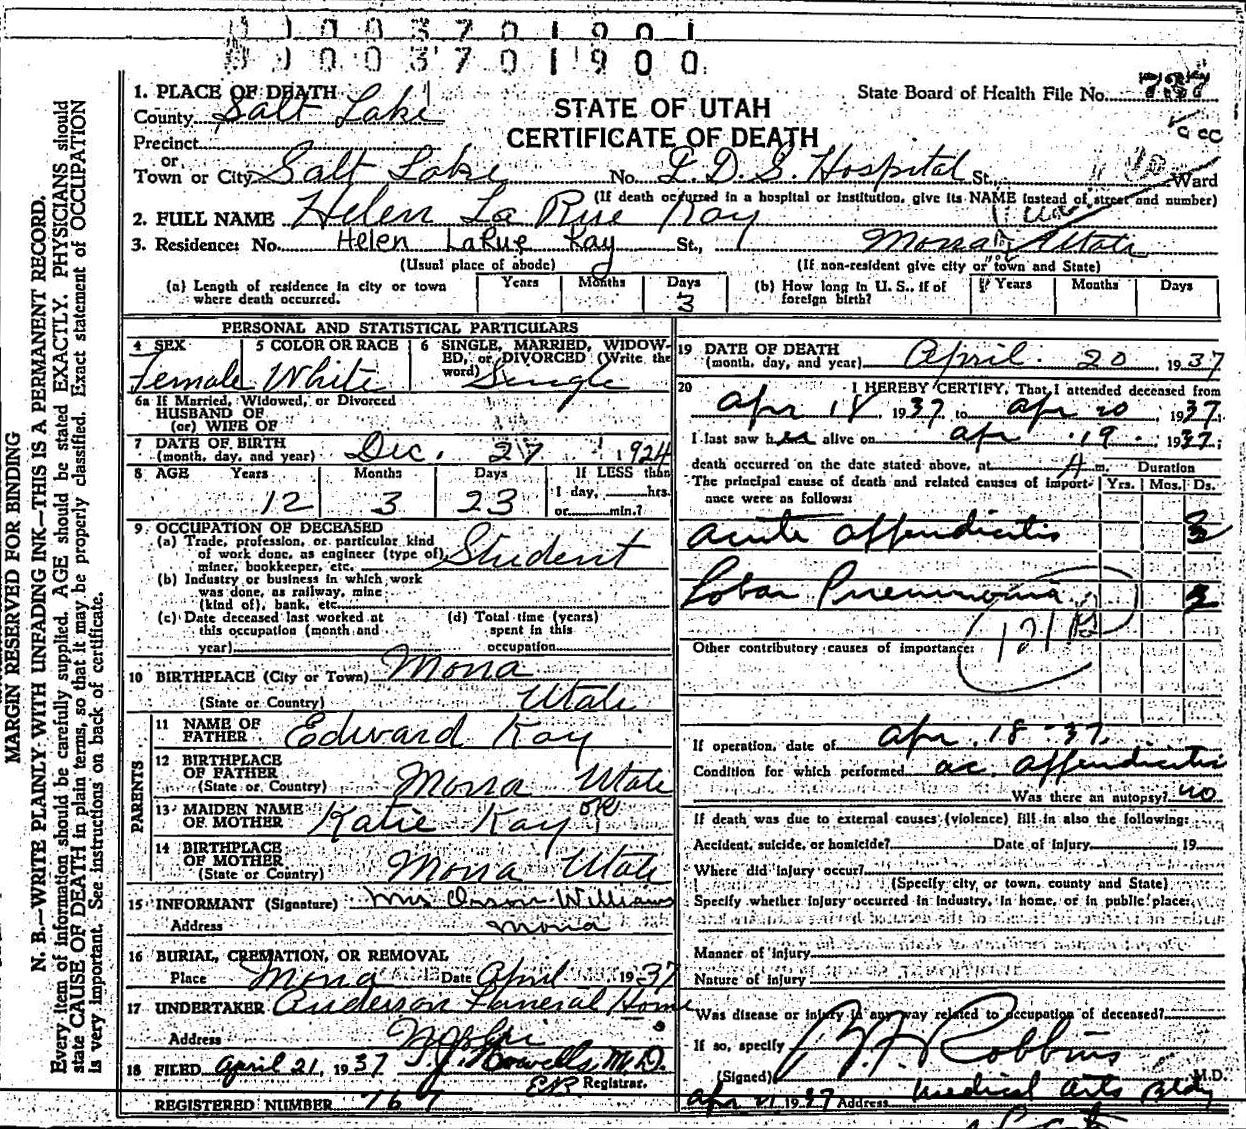 0 1 0 0 3 7 0 1 9 0 1
0 0 0 3 7 0 1 9 0 0
MARGIN RESERVED FOR BINDING
N. B.—WRITE PLAINLY WITH UNFADING INK—THIS IS A PERMANENT RECORD.
Every item of information should be carefully supplied. AGE should be stated EXACTLY. PHYSICIANS should
state CAUSE OF DEATH in plain terms, so that it may be properly classified. Exact statement of OCCUPATION
is very important. See instructions on back of certificate.
1. PLACE OF DEATH
County Salt Lake
Precinct
or
Town or City Salt Lake No. L. D. S. Hospital St. Ward
STATE OF UTAH
CERTIFICATE OF DEATH
State Board of Health File No. 787
(If death occurred in a hospital or institution, give its NAME instead of street and number)
2. FULL NAME Helen La Rue Kay
3. Residence: No. Helen LaRue Kay St., Mona Utah
(Usual place of abode) (If non-resident give city or town and State)
(a) Length of residence in city or town where death occurred. Years Months Days 3
(b) How long in U. S., if of foreign birth? Years Months Days
PERSONAL AND STATISTICAL PARTICULARS
4 SEX Female
5 COLOR OR RACE White
6 SINGLE, MARRIED, WIDOWED, or DIVORCED (Write the word) Single
6a If Married, Widowed, or Divorced
HUSBAND OF
(or) WIFE OF
7 DATE OF BIRTH
(month, day, and year) Dec. 27 1924
8 AGE Years 12 Months 3 Days 23 If LESS than
1 day, hrs.
or min.?
9 OCCUPATION OF DECEASED
(a) Trade, profession, or particular kind
of work done, as engineer (type of),
miner, bookkeeper, etc. Student
(b) Industry or business in which work
was done, as railway, mine
(kind of), bank, etc.
(c) Date deceased last worked at
this occupation (month and
year)
(d) Total time (years)
spent in this
occupation
10 BIRTHPLACE (City or Town) Mona
(State or Country) Utah
PARENTS
11 NAME OF
FATHER Edward Kay
12 BIRTHPLACE
OF FATHER
(State or Country) Mona Utah
13 MAIDEN NAME
OF MOTHER Katie Kay OK
14 BIRTHPLACE
OF MOTHER
(State or Country) Mona Utah
15 INFORMANT (Signature) Mrs Orson Williams
Address Mona
16 BURIAL, CREMATION, OR REMOVAL
Place Mona Date April 1937
17 UNDERTAKER Anderson Funeral Home
Address Nephi
18 FILED April 21, 1937 Howells, M.D.
Registrar.
REGISTERED NUMBER 767
19 DATE OF DEATH
(month, day, and year) April 20, 1937
20 I HEREBY CERTIFY, That I attended deceased from
Apr 18, 1937, to Apr 20, 1937;
I last saw her alive on Apr 19, 1937;
death occurred on the date stated above, at A m.
The principal cause of death and related causes of importance were as follows:
Duration
Yrs. Mos. Ds.
acute appendicitis 3
Lobar Pneumonia 3
Other contributory causes of importance:
If operation, date of Apr. 18-37.
Condition for which performed ac. appendicitis
Was there an autopsy? no
If death was due to external causes (violence) fill in also the following:
Accident, suicide, or homicide? Date of Injury 19
Where did injury occur?
(Specify city, or town, county and State)
Specify whether injury occurred in industry, in home, or in public place:
Manner of injury
Nature of injury
Was disease or injury in any way related to occupation of deceased?
If so, specify
(Signed) Robbins M.D.
Apr 21 1937 Address Medical Arts Bldg